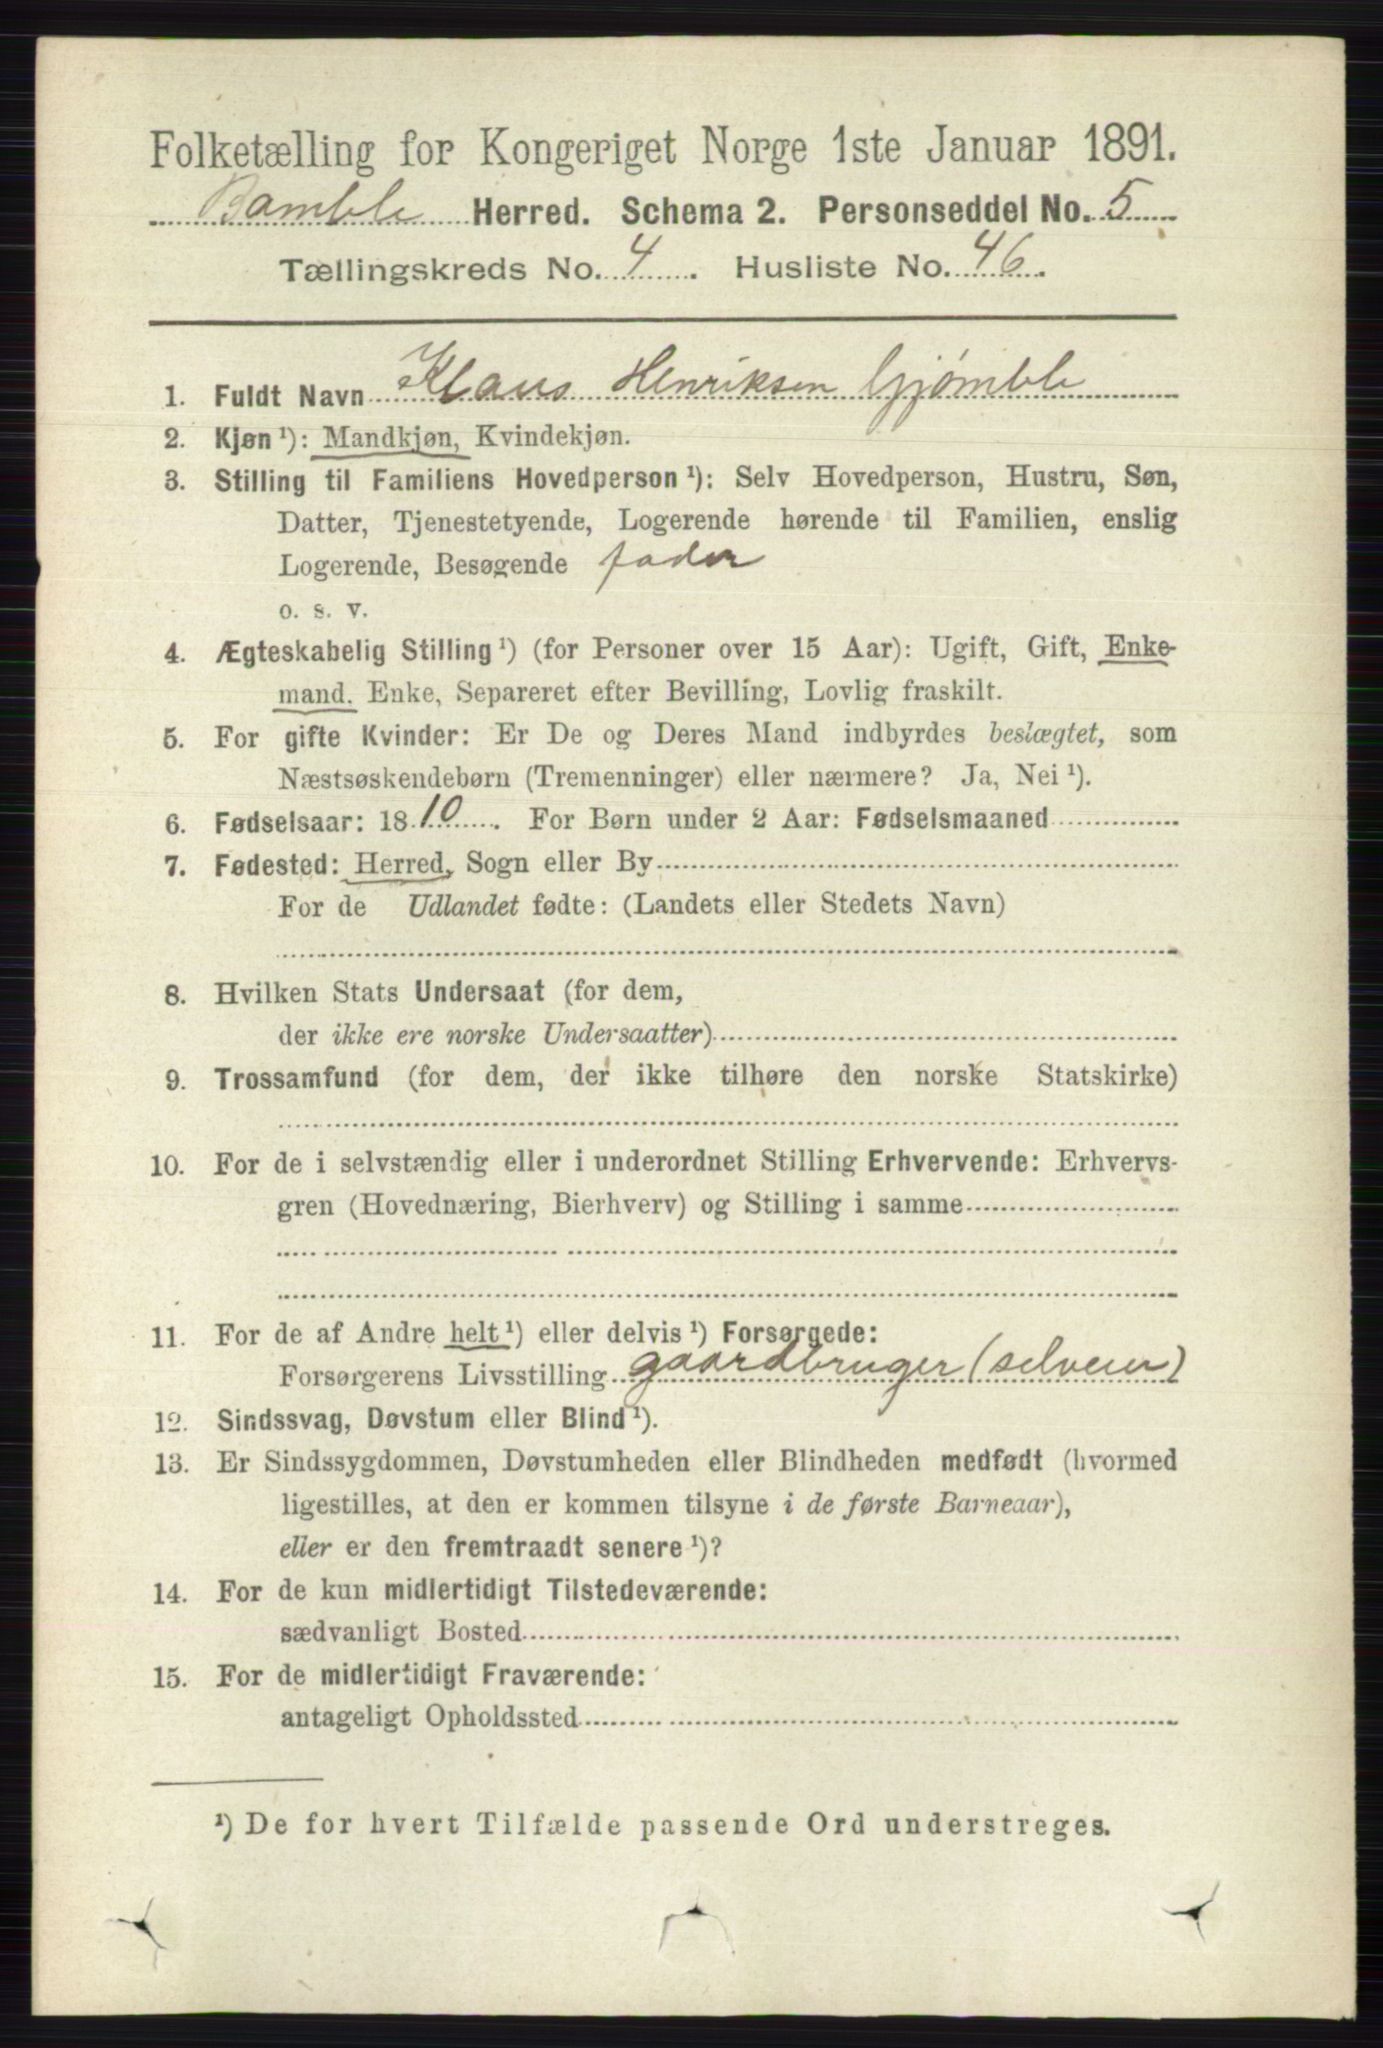 Folketælling for Kongeriget Norge 1ste Januar 1891.
Bamble Herred. Schema 2. Personseddel No. 5
Tællingskreds No. 4. Husliste No. 46.
1. Fuldt Navn Klaus Henriksen Gjømble
2. Kjøn ¹): Mandkjøn, Kvindekjøn.
3. Stilling til Familiens Hovedperson ¹): Selv Hovedperson, Hustru, Søn,
Datter, Tjenestetyende, Logerende hørende til Familien, enslig
Logerende, Besøgende fader
o. s. v.
4. Ægteskabelig Stilling ¹) (for Personer over 15 Aar): Ugift, Gift, Enke-
mand, Enke, Separeret efter Bevilling, Lovlig fraskilt.
5. For gifte Kvinder: Er De og Deres Mand indbyrdes beslægtet, som
Næstsøskendebørn (Tremenninger) eller nærmere? Ja, Nei ¹).
6. Fødselsaar: 1810. For Børn under 2 Aar: Fødselsmaaned
7. Fødested: Herred, Sogn eller By
For de Udlandet fødte: (Landets eller Stedets Navn)
8. Hvilken Stats Undersaat (for dem,
der ikke ere norske Undersaatter)
9. Trossamfund (for dem, der ikke tilhøre den norske Statskirke)
10. For de i selvstændig eller i underordnet Stilling Erhvervende: Erhvervs-
gren (Hovednæring, Bierhverv) og Stilling i samme
11. For de af Andre helt ¹) eller delvis ¹) Forsørgede:
Forsørgerens Livsstilling gaardbruger (selveier)
12. Sindssvag, Døvstum eller Blind ¹).
13. Er Sindssygdommen, Døvstumheden eller Blindheden medfødt (hvormed
ligestilles, at den er kommen tilsyne i de første Barneaar),
eller er den fremtraadt senere ¹)?
14. For de kun midlertidigt Tilstedeværende:
sædvanligt Bosted
15. For de midlertidigt Fraværende:
antageligt Opholdssted
¹) De for hvert Tilfælde passende Ord understreges.